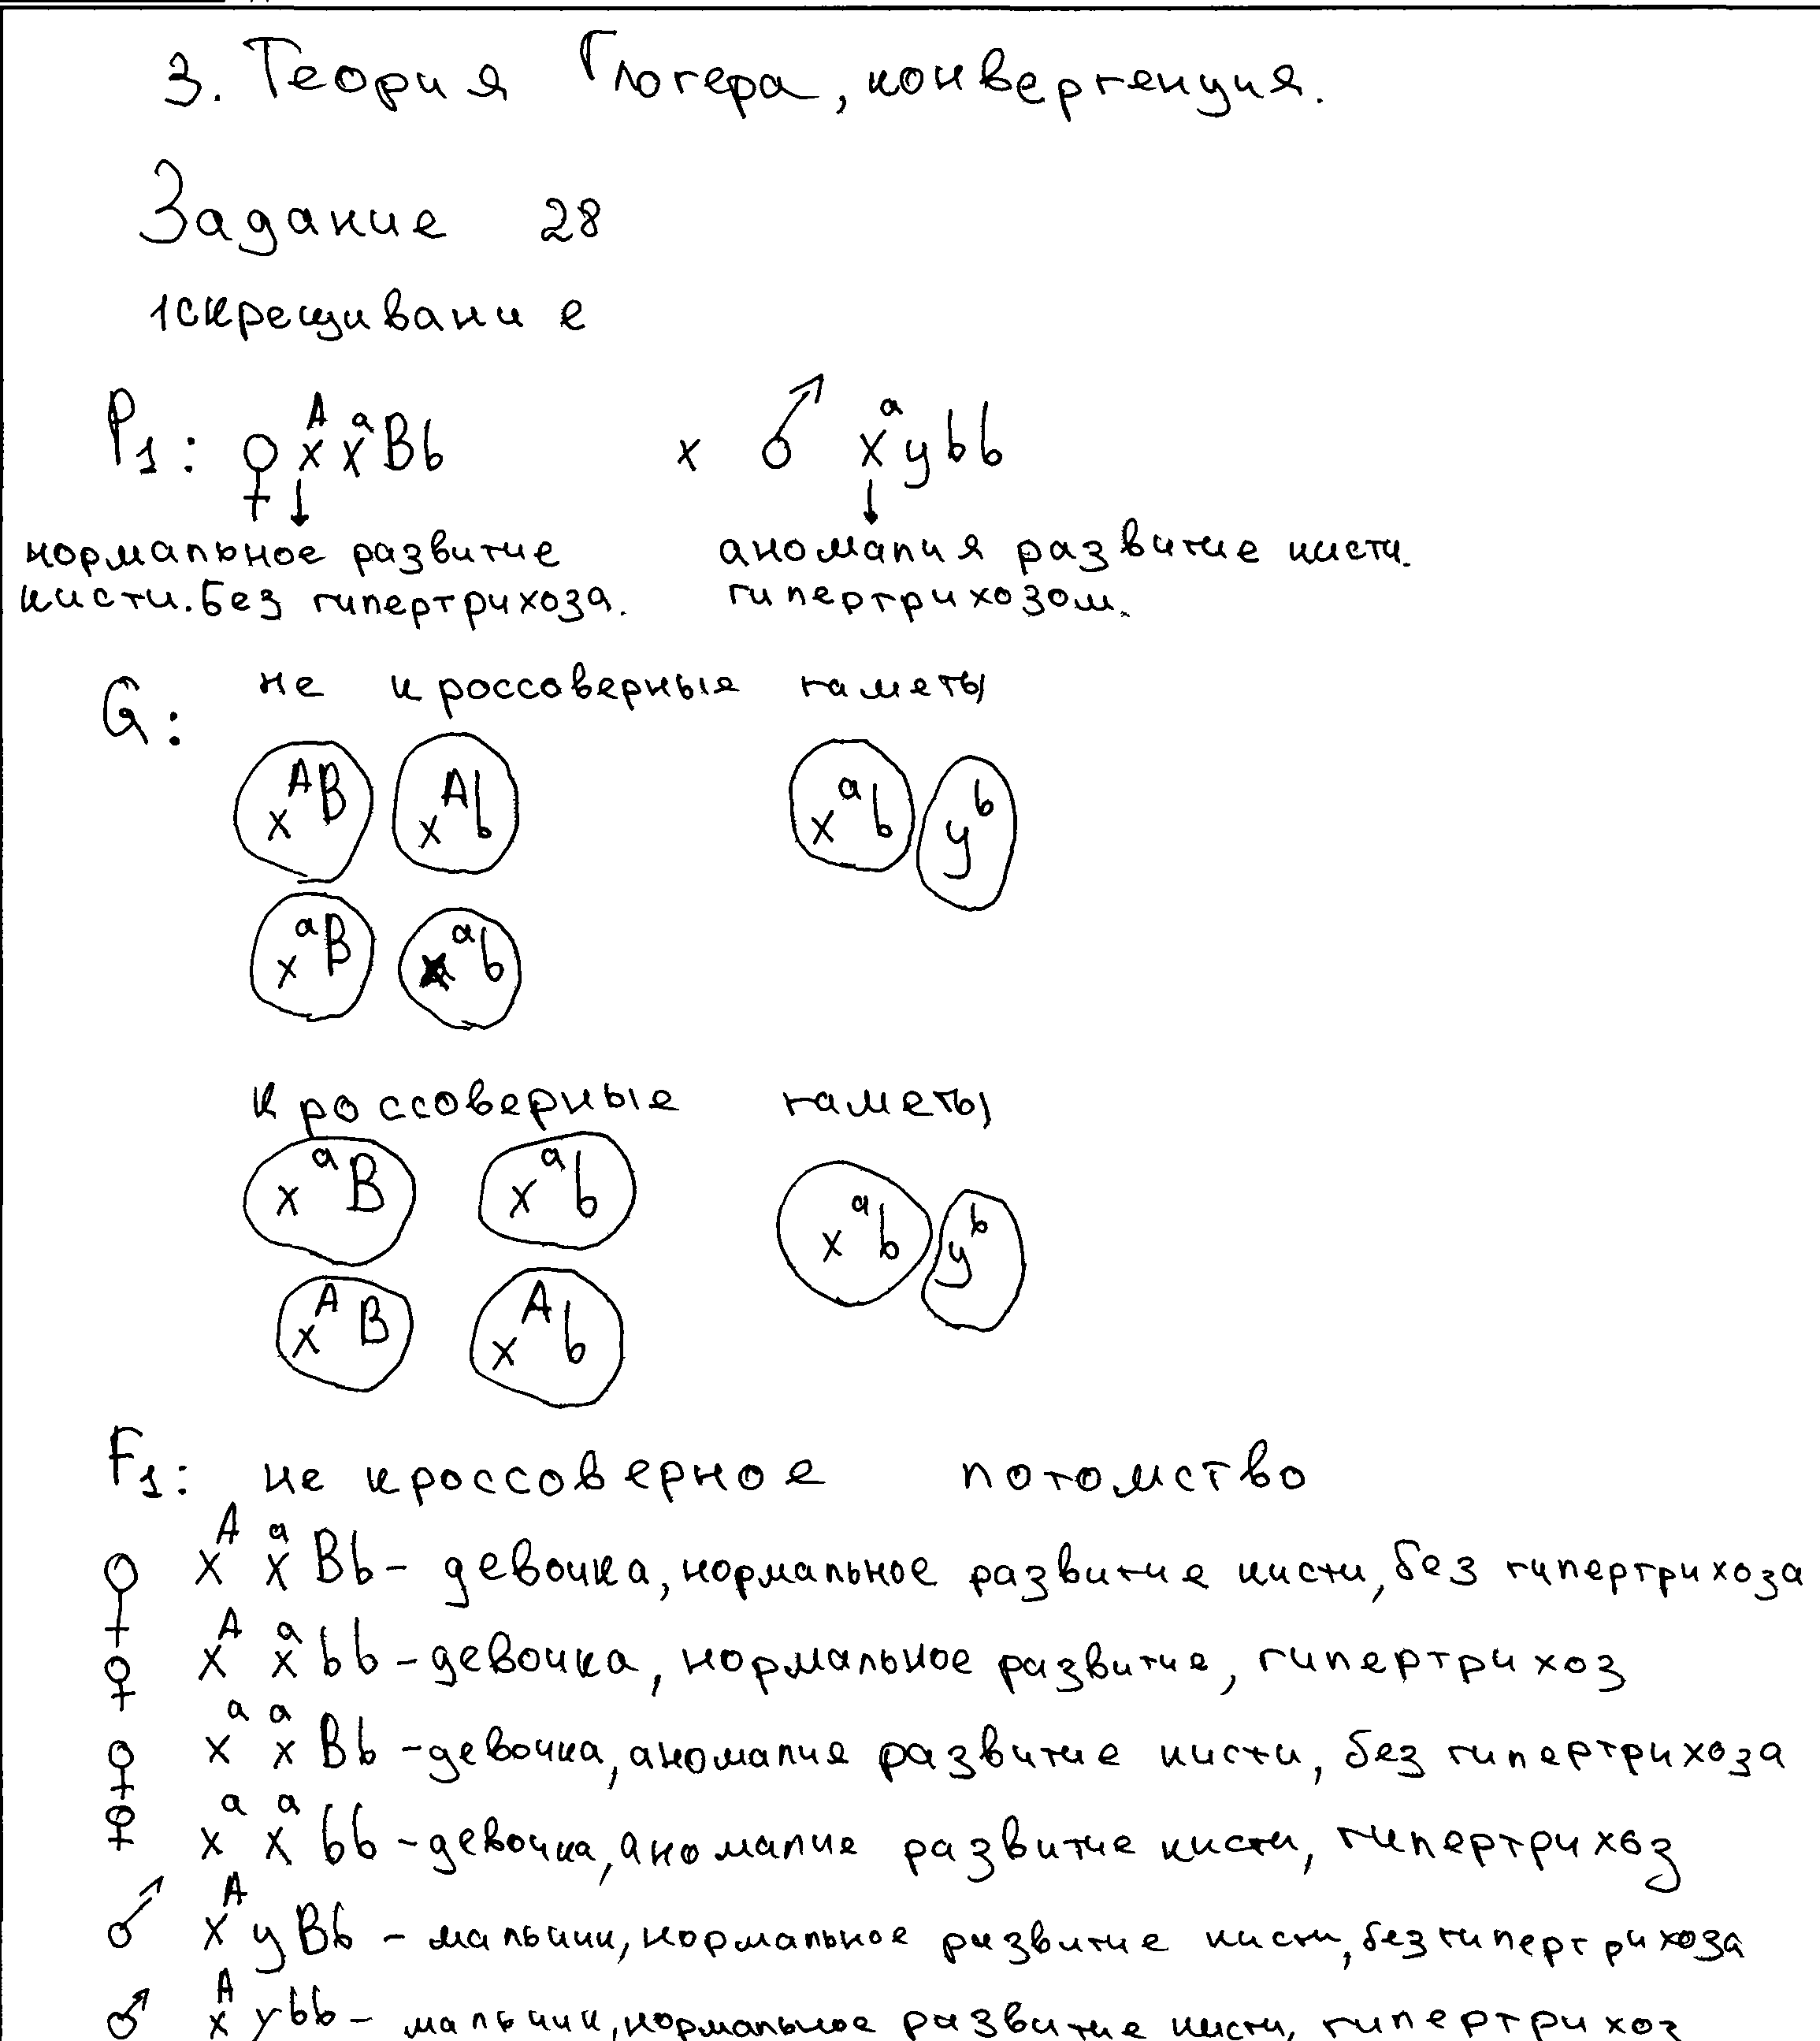 3. Теория Глогера, конвергенция.
Задание 28
1скрещивание
P₁: ♀ xᴬ xᵃ Bb x ♂ xᵃ y bb
нормальное развитие аномалия развитие кисти.
кисти. Без гипертрихоза. гипертрихозом.
G: не кроссоверные гаметы
xᴬB xᴬb xᵃb yᵇ
xᵃB xᵃb
кроссоверные гаметы
xᵃB xᵃb xᵃb yᵇ
xᴬB xᴬb
F₁: не кроссоверное потомство
♀ xᴬ xᵃ Bb - девочка, нормальное развитие кисти, без гипертрихоза
♀ xᴬ xᵃ bb - девочка, нормальное развитие, гипертрихоз
♀ xᵃ xᵃ Bb - девочка, аномалие развитие кисти, без гипертрихоза
♀ xᵃ xᵃ bb - девочка, аномалие развитие кисти, гипертрихоз
♂ xᴬ y Bb - мальчик, нормальное развитие кисти, без гипертрихоза
♂ xᴬ y bb - мальчик, нормальное развитие кисти, гипертрихоз